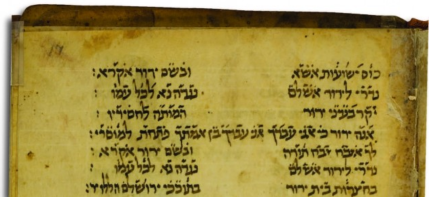 כוס ישועות אשא ובשם ידוד אקרא :
נדרי לידוד אשלם נגדה נא לכל עמו :
יקר בעיני ידוד המותה לחסידיו :
אנה ידוד כי אני עבדך אני עבדך בן אמתך פתחת למוסרי :
לך אזבח זבח תודה ובשם ידוד אקרא :
נדרי לידוד אשלם נגדה נא לכל עמו :
בחצרות בית ידוד בתוככי ירושלם הללויד :